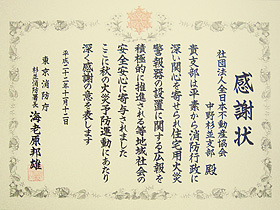 感謝状
社団法人全日本不動産協会
中野杉並支部 殿
貴支部は平素から消防行政に
深い関心を寄せられ住宅用火災
警報器の設置に関する広報を
積極的に推進される等地域社会の
安全安心に寄与されました
ここに秋の火災予防運動にあたり
深く感謝の意を表します
平成二十二年十一月十二日
東京消防庁
杉並消防署長 海老原邦雄